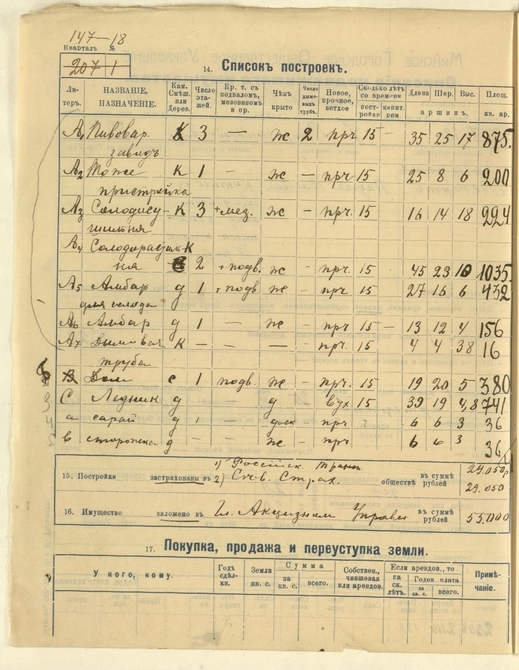 147-18
Кварталъ №
207 1
14. Списокъ построекъ.
Ли- теръ. НАЗВАНІЕ, НАЗНАЧЕНІЕ. Кам. Смѣш. или Дерев. Число эта- жей. Кр. т. съ подваломъ, мезониномъ и пр. Чѣмъ крыто Число дымо- выхъ трубъ. Новое, прочное, ветхое Сколько лѣтъ со времени пост- ройки капит. рем. Длина Шир. Выс. аршинъ. Площ. кв. ар.
А1 Пивовар. К 3 — ж 2 прч 15 — 35 25 17 875.
заводъ
А2 Тоже К 1 — ж — прч. 15 25 8 6 200
пристройка
А3 Солодосу- К 3 +мез. ж — прч. 15 16 14 18 224
шильня
А4 К
ня 2 +подв. ж — прч. 15 45 23 10 1035
А5 Амбар д 1 +подв. ж — прч. 15 27 16 6 432
для солода
А6 Амбар д 1 — ж — прч. 15 — 13 12 4 156
А7 Дымовая К — — — прч. 15 4 4 38 16
труба
В Дом с 1 подв. ж — прч. 15 19 20 5 380
С Ледник д д вух 15 39 19 4,8 741
а сарай д 1 доск прч 6 6 3 36
в сторожка д — — ж. — прч 6 6 3 36
15. Постройки застрахованы въ 1) Россійск. Трансп обществѣ въ суммѣ рублей 29.050
2) Сѣв. Страх. 29.050
16. Имущество заложено въ Акцизном Управл въ суммѣ рублей 55.000
17. Покупка, продажа и переуступка земли.
У кого, кому. Годъ сдѣл- ки. Земли кв. с. Сумма за кв. с. всего. Собствен., чиншевая или арендов. Если арендов., то на ск. лѣтъ. Годов. плата за кв. с. всего. Примѣ- чаніе.